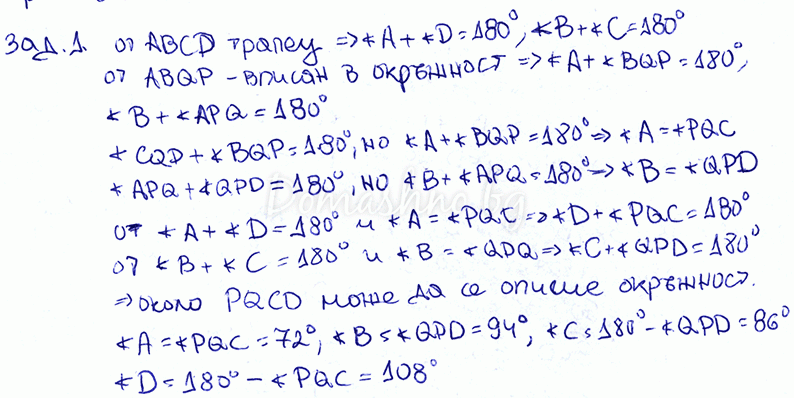 Зад.1. от ABCD трапец => ∢A + ∢D = 180°, ∢B + ∢C = 180°
от ABQP - вписан в окръжност => ∢A + ∢BQP = 180°,
∢B + ∢APQ = 180°
∢CQD + ∢BQP = 180°, но ∢A + ∢BQP = 180° => ∢A = ∢PQC
∢APQ + ∢QPD = 180°, но ∢B + ∢APQ = 180° -> ∢B = ∢QPD
Domashno.bg
от ∢A + ∢D = 180° и ∢A = ∢PQC => ∢D + ∢PQC = 180°
от ∢B + ∢C = 180° и ∢B = ∢QDQ => ∢C + ∢QPD = 180°
=> около PQCD може да се опише окръжност.
∢A = ∢PQC = 72°, ∢B = ∢QPD = 94°, ∢C = 180° - ∢QPD = 86°
∢D = 180° - ∢PQC = 108°